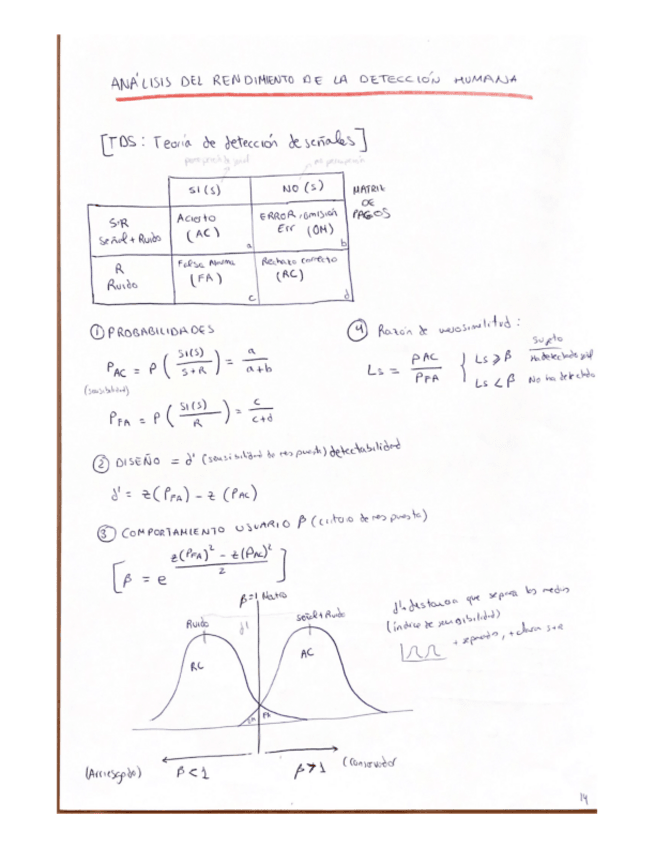 ANÁLISIS DEL RENDIMIENTO DE LA DETECCIÓN HUMANA
[TDS: Teoría de detección de señales]
SI(S) NO(S) MATRIZ DE PAGOS
S+R Señal + Ruido Acierto (AC) a ERROR, omisión Err (OM) b
R Ruido Falsa Alarma (FA) c Rechazo correcto (RC) d
① PROBABILIDADES
P_AC = P(SI(S) / S+R) = a / a+b
(sensibilidad)
P_FA = P(SI(S) / R) = c / c+d
④ Razón de verosimilitud:
Sujeto
Ls = PAC / PFA { Ls ⩾ β Ha detectado señal
Ls < β No ha detectado
② DISEÑO = d' (sensibilidad de respuesta) detectabilidad
d' = z(P_FA) - z(P_AC)
③ COMPORTAMIENTO USUARIO β (criterio de respuesta)
[β = e^(z(P_FA)² - z(P_AC)² / 2)]
β=1 Neutro
Ruido d' señal+Ruido
RC AC
FA
d' = distancia que separa las medias
(índice de sensibilidad)
+ separados, + clara S+R
(Arriesgado) β<1 β>1 (conservador
14